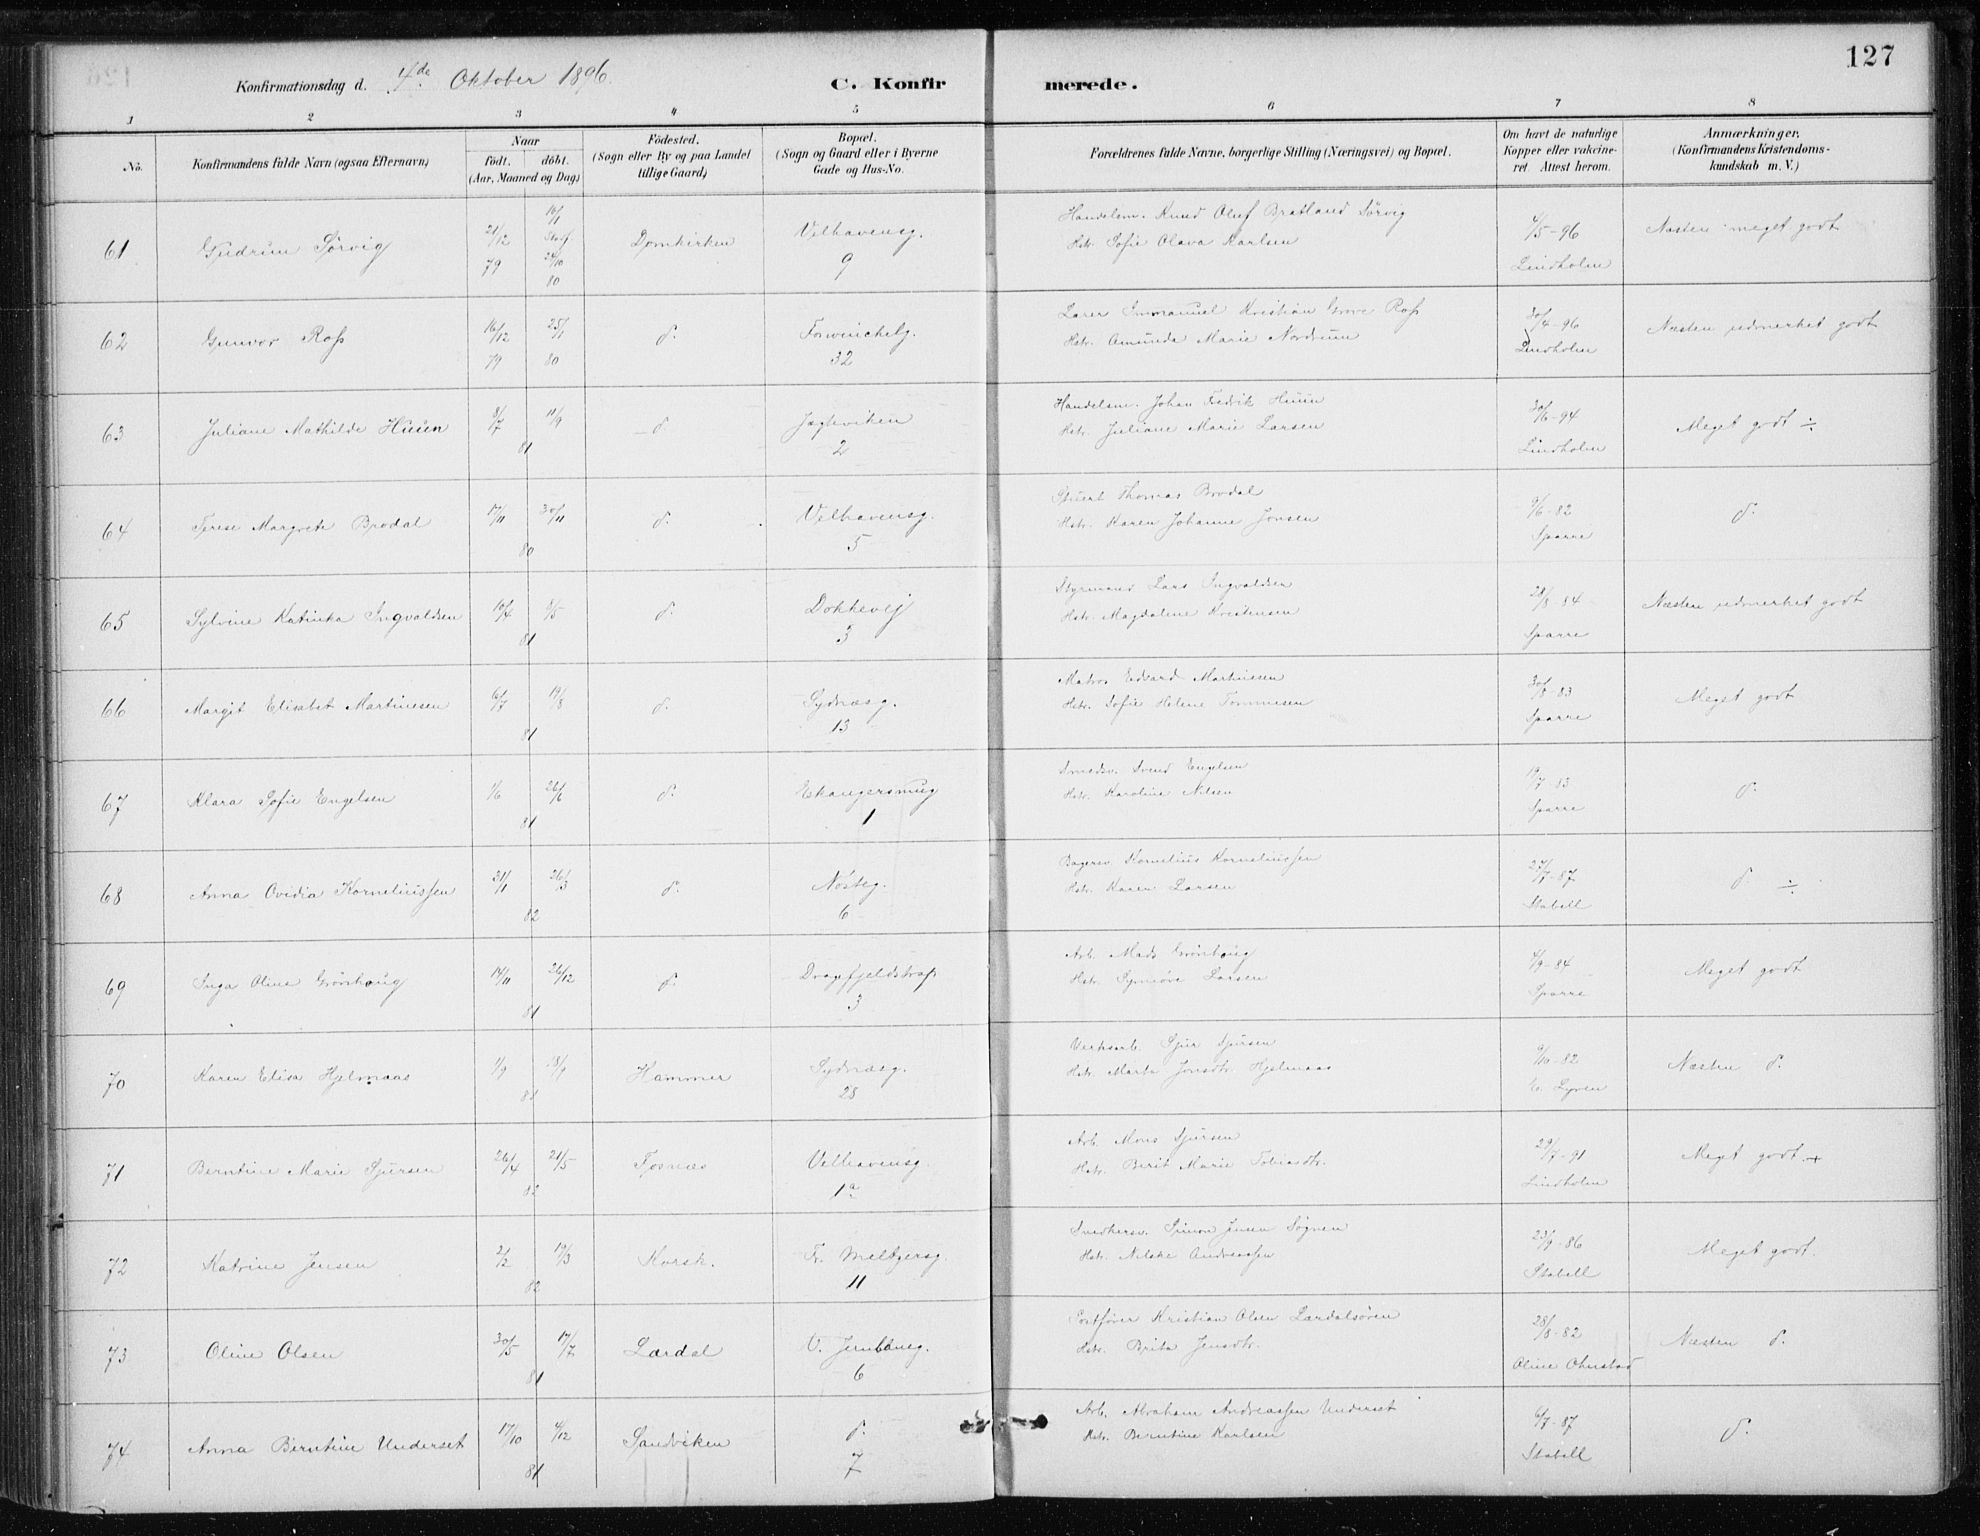 127
Konfirmationsdag d. 4de Oktober 1896.
C. Konfirmerede.
1 2 3 4 5 6 7 8
No.
Konfirmandens fulde Navn (ogsaa Efternavn)
Naar
födt. döbt.
(Aar, Maaned og Dag)
Födested.
(Sogn eller By og paa Landet
tillige Gaard)
Bopæl.
(Sogn og Gaard eller i Byerne
Gade og Hus-No.
Forældrenes fulde Navne, borgerlige Stilling (Næringsvei) og Bopæl.
Om havt de naturlige
Kopper eller vakcine-
ret. Attest herom.
Anmærkninger.
(Konfirmandens Kristendoms-
kundskab m. V.)
61 Gudrun Sørvig 21/12 79 16/1 Stadf. 24/10 80 Domkirken Velhavensg. 9
Handelsm. Knud Oluf Bratland Sørvig
Hstr. Sofie Olava Karlsen
4/5-96 Lindholm Næsten meget godt
62 Gunvor Ross 16/12 79 25/1 80 d. Forswinchelg. 32
Lærer Immanuel Kristian Grove Ross
Hstr. Amunda Marie Nordrum
30/4-96 Lindholm Næsten udmerket godt
63 Juliane Mathilde Huun 8/7 11/9 81 d. Jagteviken 2
Handelsm. Johan Fredrik Huun
Hstr. Juliane Marie Larsen
30/6-94 Lindholm Meget godt ÷
64 Terese Margrete Brodal 17/11 30/11 80 d. Velhavensg. 5
Stuert Thomas Brodal
Hstr. Karen Johanne Jonsen
9/6-82 Sparre d.
65 Sylvine Katinka Ingvaldsen 10/4 8/5 81 d. Dokkevej 3
Styrmand Lars Ingvaldsen
Hstr. Magdalene Kristensen
28/8-84 Sparre Næsten udmerket godt
66 Margit Elisabet Martinesen 6/7 19/8 81 d. Sydnæsg. 13
Matros Edvard Martinesen
Hstr. Sofie Helene Tommesen
30/8-83 Sparre Meget godt
67 Klara Sofie Engelsen 1/6 26/6 81 d. Ekangersmug 1
Smedsv. Svend Engelsen
Hstr. Karoline Nilsen
19/7-83 Sparre d.
68 Anna Ovidia Korneliussen 31/1 26/3 82 d. Nøsteg. 6
Bagersv. Kornelius Korneliussen
Hstr. Karen Larsen
27/7-87 Stabell d. ÷
69 Inga Oline Grønhaug 14/11 26/12 81 d. Dragefjeldstrap. 3
Arb. Mads Grønhaug
Hstr. Synnøve Larsen
4/9-84 Sparre Meget godt
70 Karen Elisa Hjelmaas 1/9 18/9 81 Hammer Sydnæsg. 28
Verksarb. Sjur Sjursen
Hstr. Marta Jonsdtr. Hjelmaas
9/10-82 E. Lyren Næsten d.
71 Berntine Marie Sjursen 26/4 21/5 82 Fosnæs Velhavensg. 1a
Arb. Mons Sjursen
Hstr. Berit Marie Tobiasdtr.
29/7-91 Lindholm Meget godt. +
72 Katrine Jensen 2/2 19/3 82 Korsk. Fr. Meltzersg. 11
Snedkersv. Simon Jensen Søgnen
Hstr. Nilske Andreassen
23/9-86 Stabell Meget godt.
73 Oline Olsen 30/5 17/7 81 Lærdal V. Jernbaneg. 6
Postfører Kristian Olsen Lærdalsøren
Hstr. Brita Jensdtr.
28/8-82 Oline Ohnstad Næsten d.
74 Anna Berntine Underset 17/10 4/12 81 Sandviken d. 7
Arb. Abraham Andreassen Underset
Hstr. Berntine Karlsen
6/7-87 Stabell d.